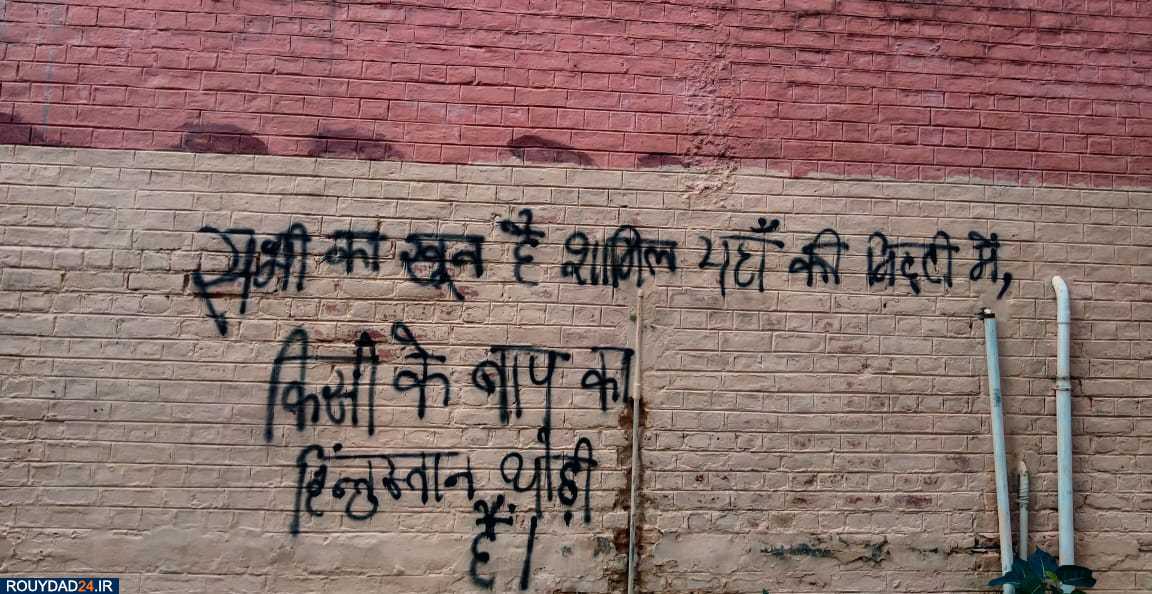 सभी का खून है शामिल यहाँ की मिट्टी में,
किसी के बाप का
हिन्दुस्तान थोड़ी
है।
ROUYDAD24.IR